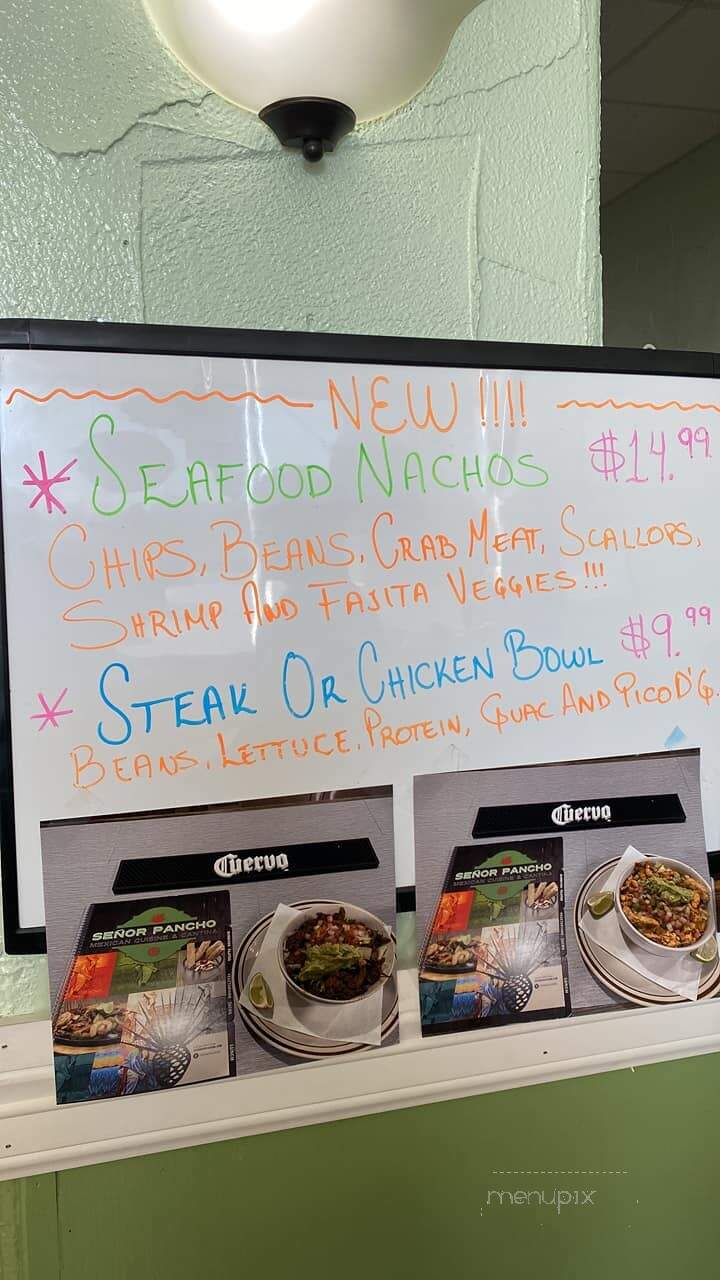 NEW !!!!
* SEAFOOD NACHOS $14.99
CHIPS, BEANS, CRAB MEAT, SCALLOPS,
SHRIMP AND FAJITA VEGGIES!!!
* STEAK OR CHICKEN BOWL $9.99
BEANS, LETTUCE, PROTEIN, GUAC AND PICO D'G.
Cuervo
SEÑOR PANCHO
MEXICAN CUISINE & CANTINA
Cuervo
SEÑOR PANCHO
MEXICAN CUISINE & CANTINA
menupix